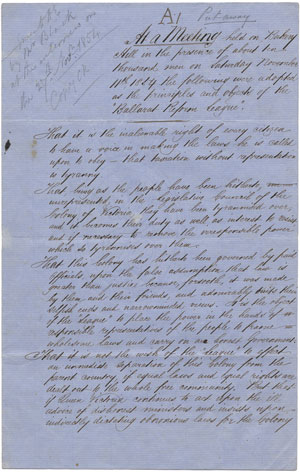 A/
Put away
At a Meeting held on Bakery
Hill in the presence of about ten
thousand, men on Saturday November
11th 1854 the following were adopted
as the principles and objects of the
"Ballarat Reform League".
That it is the inalienable right of every citizen
to have a voice in making the laws he is called
upon to obey – that taxation without representation
is tyranny
That being as the people have been hitherto,
unrepresented in the Legislative Council of the
Colony of Victoria they have been tyrannised over,
and it becomes their duty as well as interest to resist
and if necessary to remove the irresponsible power
which so tyrannises over them.
That this Colony has hitherto been governed by paid
officials, upon the false assumption that law is
greater than justice because, forsooth, it was made
by them and their friends, and admirably suits their
selfish ends and narrow minded views. It is the object
of the League to place the power in the hands of
responsible representatives of the people to frame
wholesome laws and carry on an honest Government.
That it is not the wish of the League to effect
an immediate separation of this Colony from the
parent country if equal laws and equal rights are
dealt out to the whole free community. But that
if Queen Victoria continues to act upon the ill
advice of dishonest ministers and insists upon
indirectly dictating obnoxious laws for the Colony